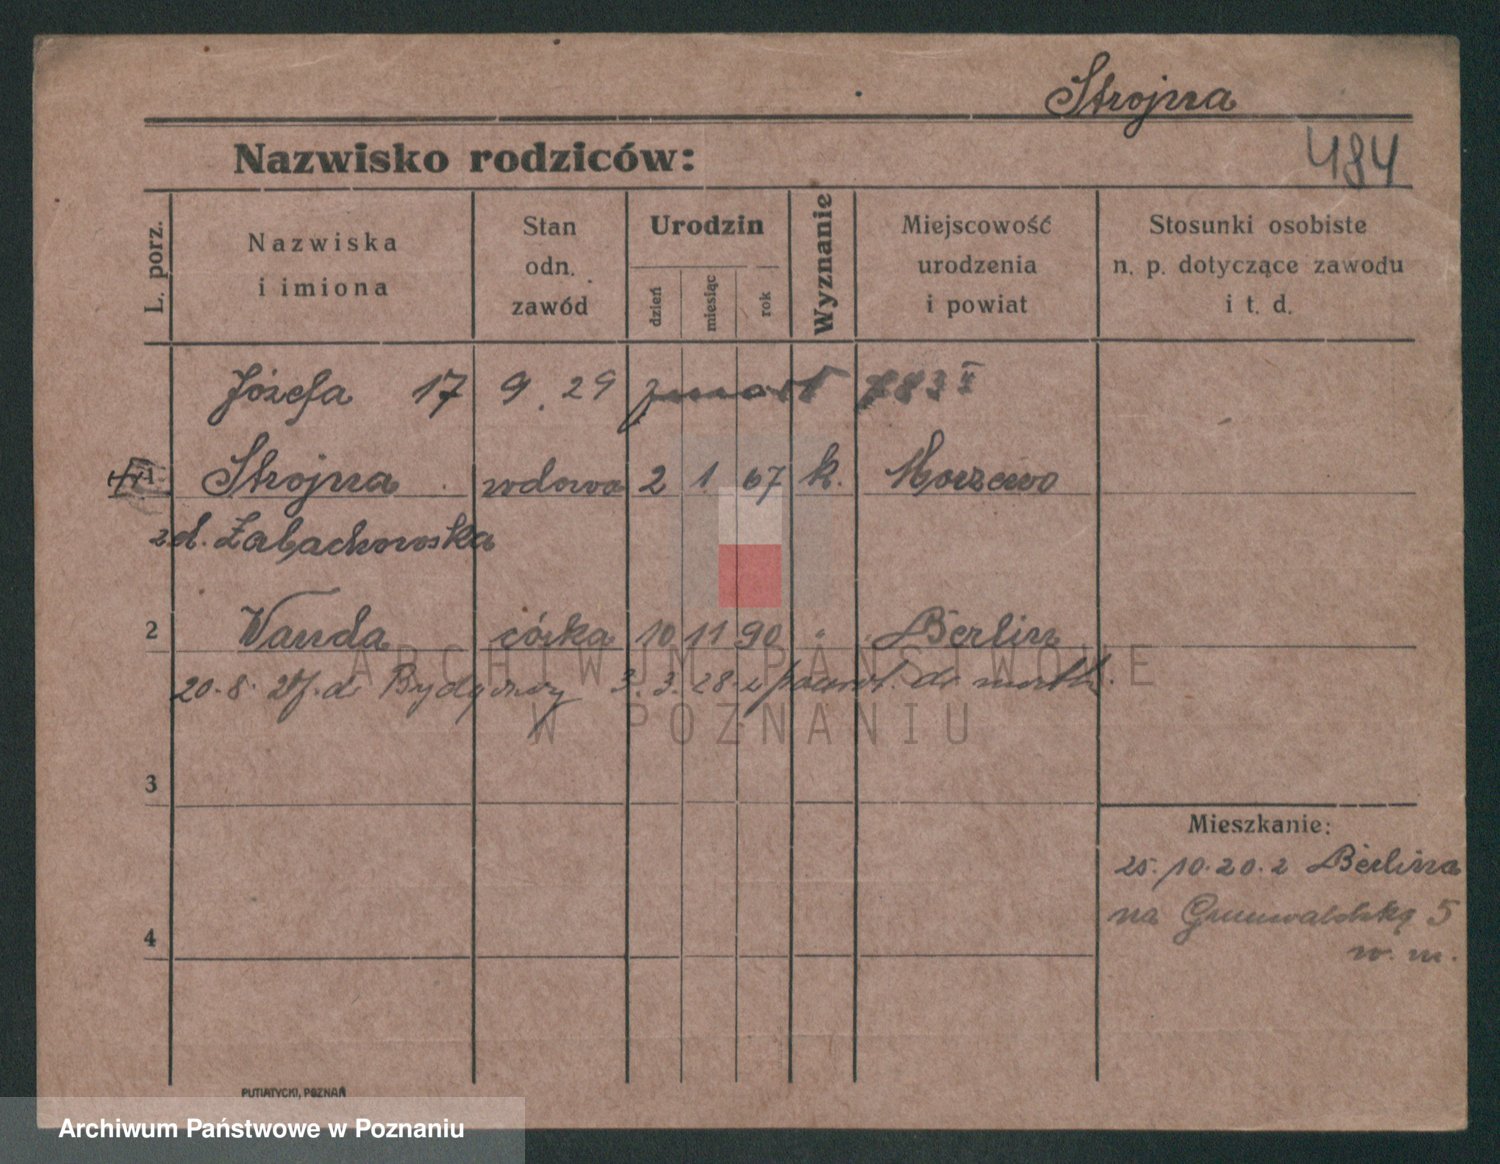 Strojna
484
Nazwisko rodziców:
L. porz.
Nazwiska
i imiona
Stan
odn.
zawód
Urodzin
dzień
miesiąc
rok
Wyznanie
Miejscowość
urodzenia
i powiat
Stosunki osobiste
n. p. dotyczące zawodu
i t. d.
Józefa 17 9. 29 zmarł 783 II
1 Strojna wdowa 2 1 67 k. Morzewo
zd. Żabachowska
2 Wanda córka 10 11 90 " Berlin
20. 8. do Bydgoszczy 3. 3. 28 z powrot. do matki.
3
4
Mieszkanie:
25. 10. 20. z Berlina
na Grunwaldzką 5
w. m.
PUTIATYCKI, POZNAŃ
ARCHIWUM PAŃSTWOWE
W POZNANIU
Archiwum Państwowe w Poznaniu